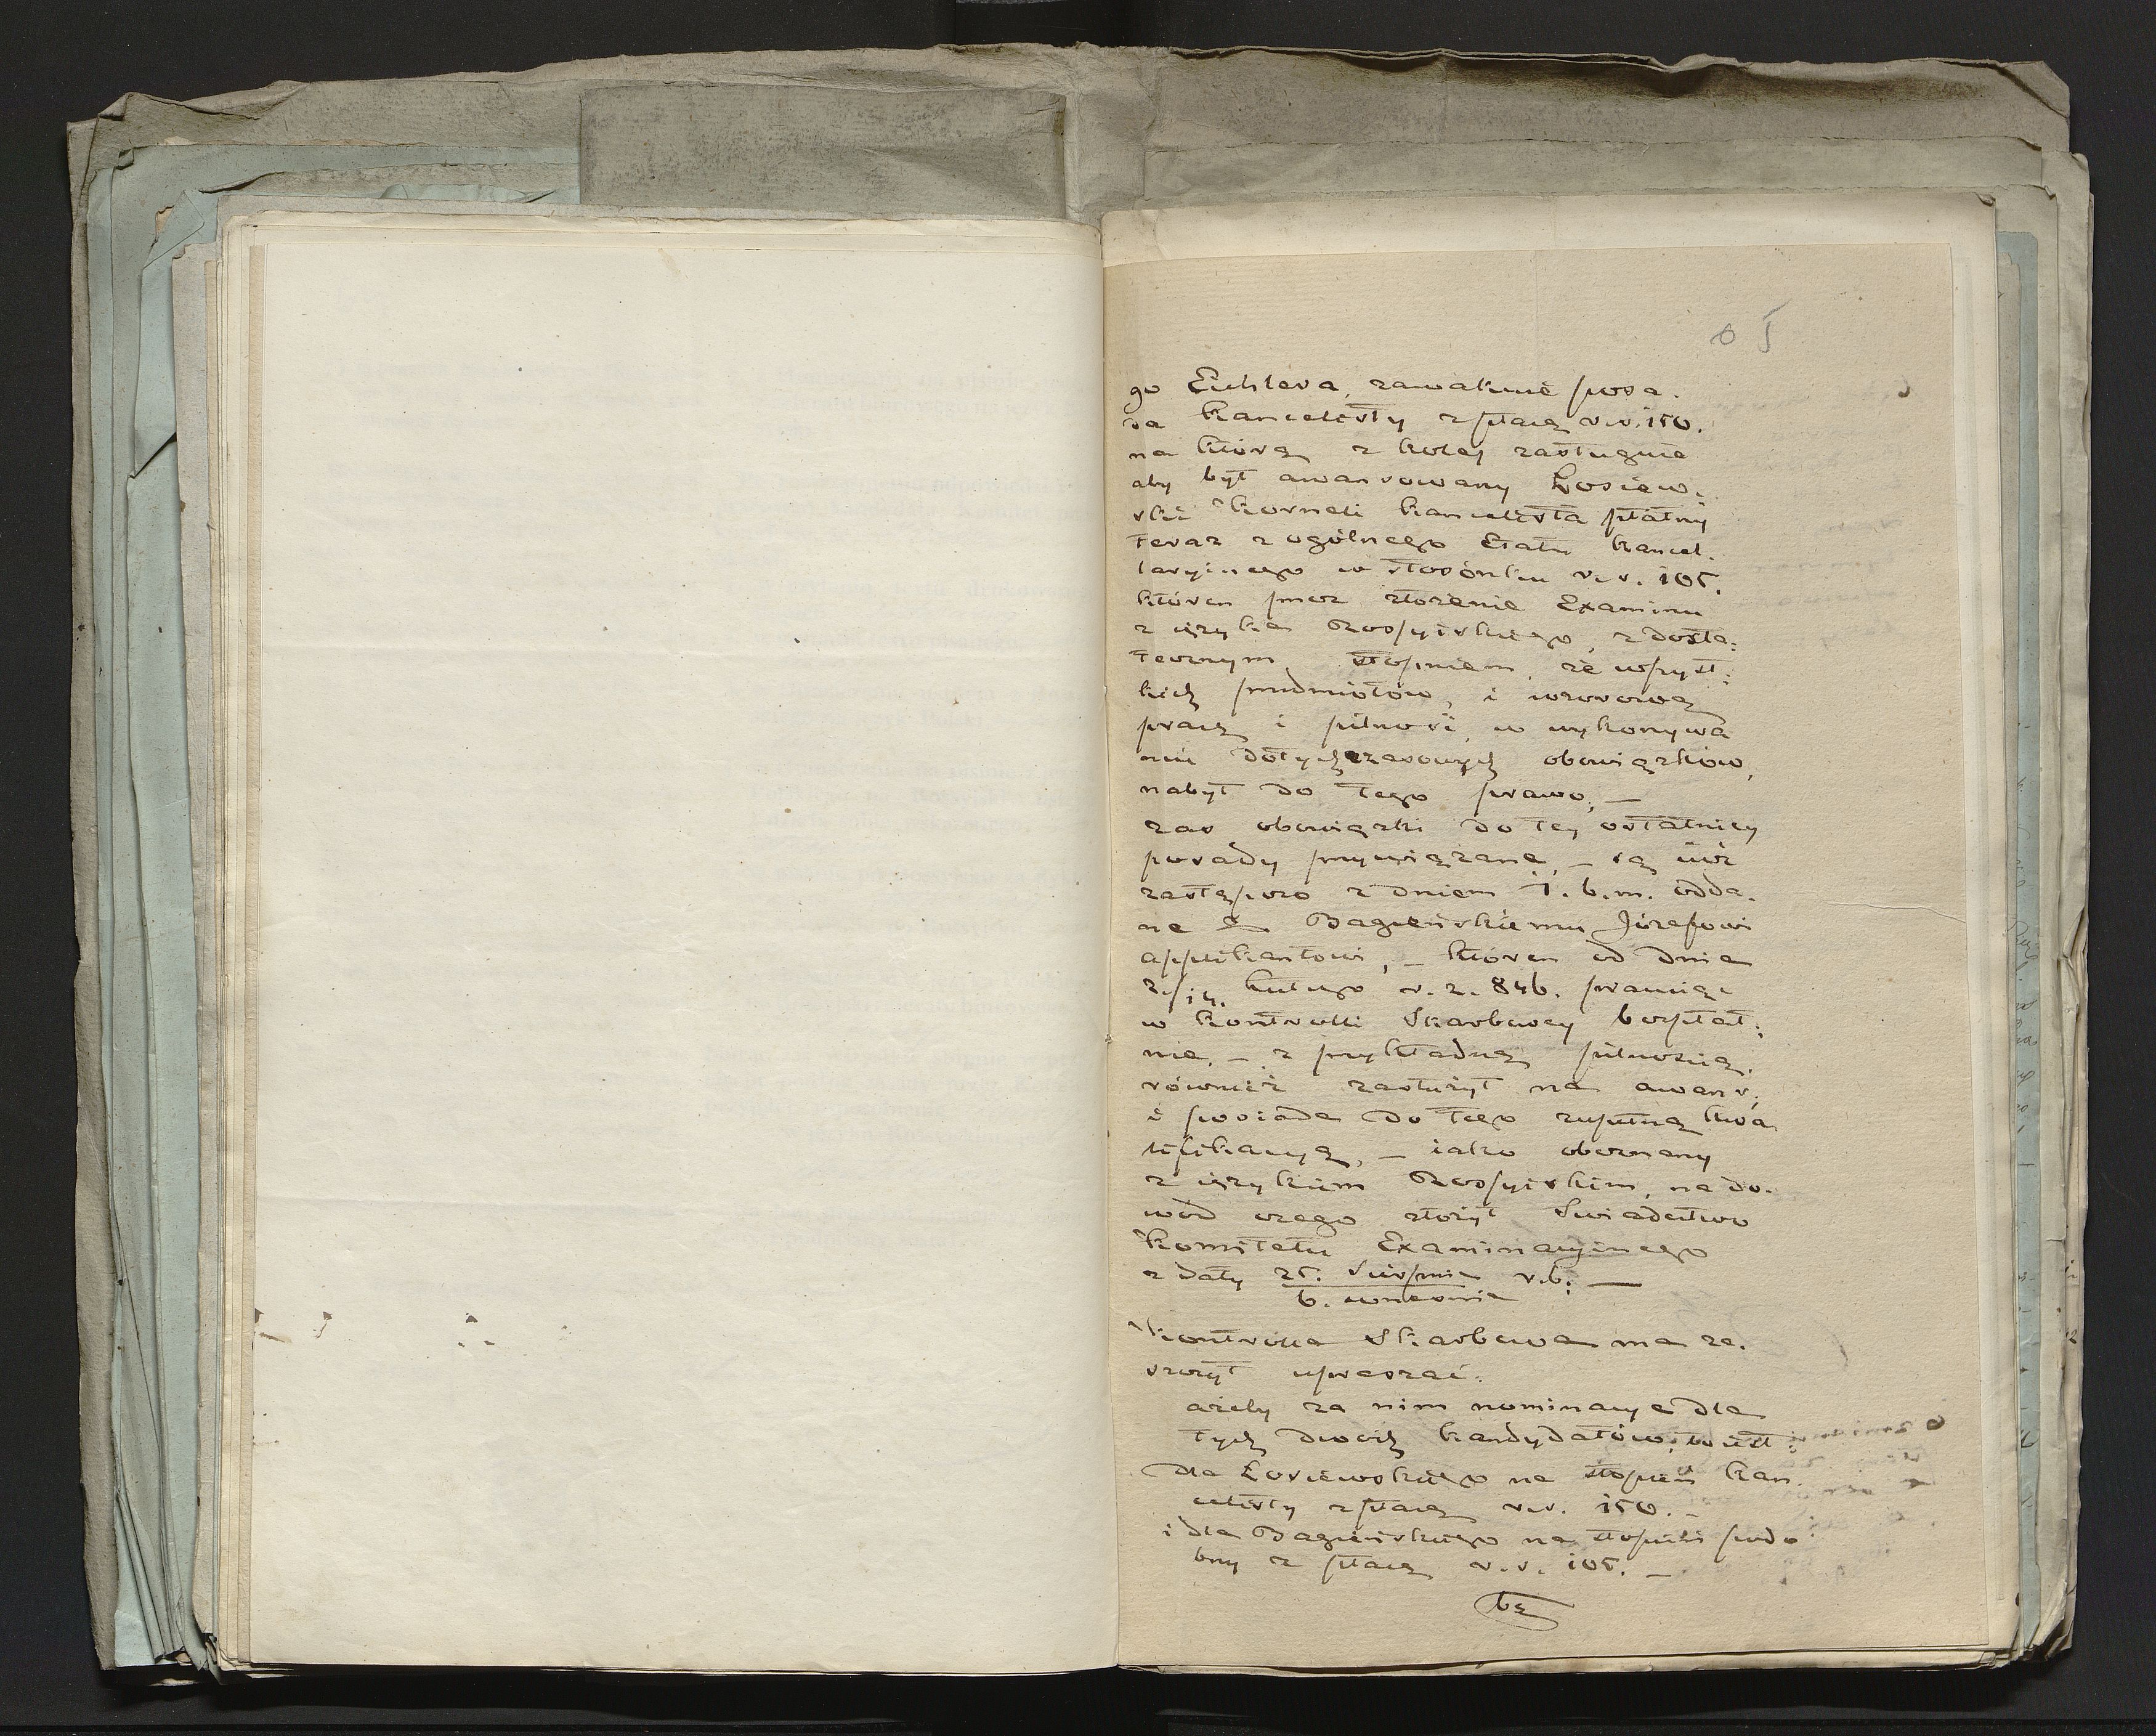 05
go Eichlera, zawakuie posa.
da kancelisty z płacą r.s. 150.
na którą z kolej zasługuie
aby był awansowany Łosiew.
ski Korneli kancelista płatny
teraz z ogólnego Etatu kancel.
laryinego w stosónku r.s. 105.
któren przez złożenie Examinu
z ięzyka Rossyiskiego, z dosta:
tecznym stopniem, ze wszyst:
kich przedmiotów, i wzorową
pracą i pilność, w wykonywa
niu dotychczasowych obowiązków,
nabył do tego prawo, —
zas obowiązki do tey ostatniey
posady przywiązane, – są iuż
zastępczo z dniem 1. b.m. odda.
ne Bagieńskiemu Józefowi
applikantowi, – któren od dnia
2./14. Lutego r. z. 846. pracuiąc
w kontrolli Skarbowey bezpłat:
nie, – z przykładną pilnością,
również zasłużył na awans,
i posiada do tego zupełną kwa.
lifikacyą, – iako obeznany
z ięzykiem Rossyiskim, na do.
wód czego złożył Swiadectwo
Komitetu Examinacyinego
z daty 25. Sierpnia r.b. —
6. wrzesnia
Kontrolla Skarbowa ma za.
szczyt upraszać.
ażeby za nim nominacye dla
tych dwóch kandydatów, to iest:
dla Łosiewskiego na stopień kan.
celisty z płacą r.s. 150. –
i dla Bagieńskiego na stopień podo
bny z płacą r.s. 105. –